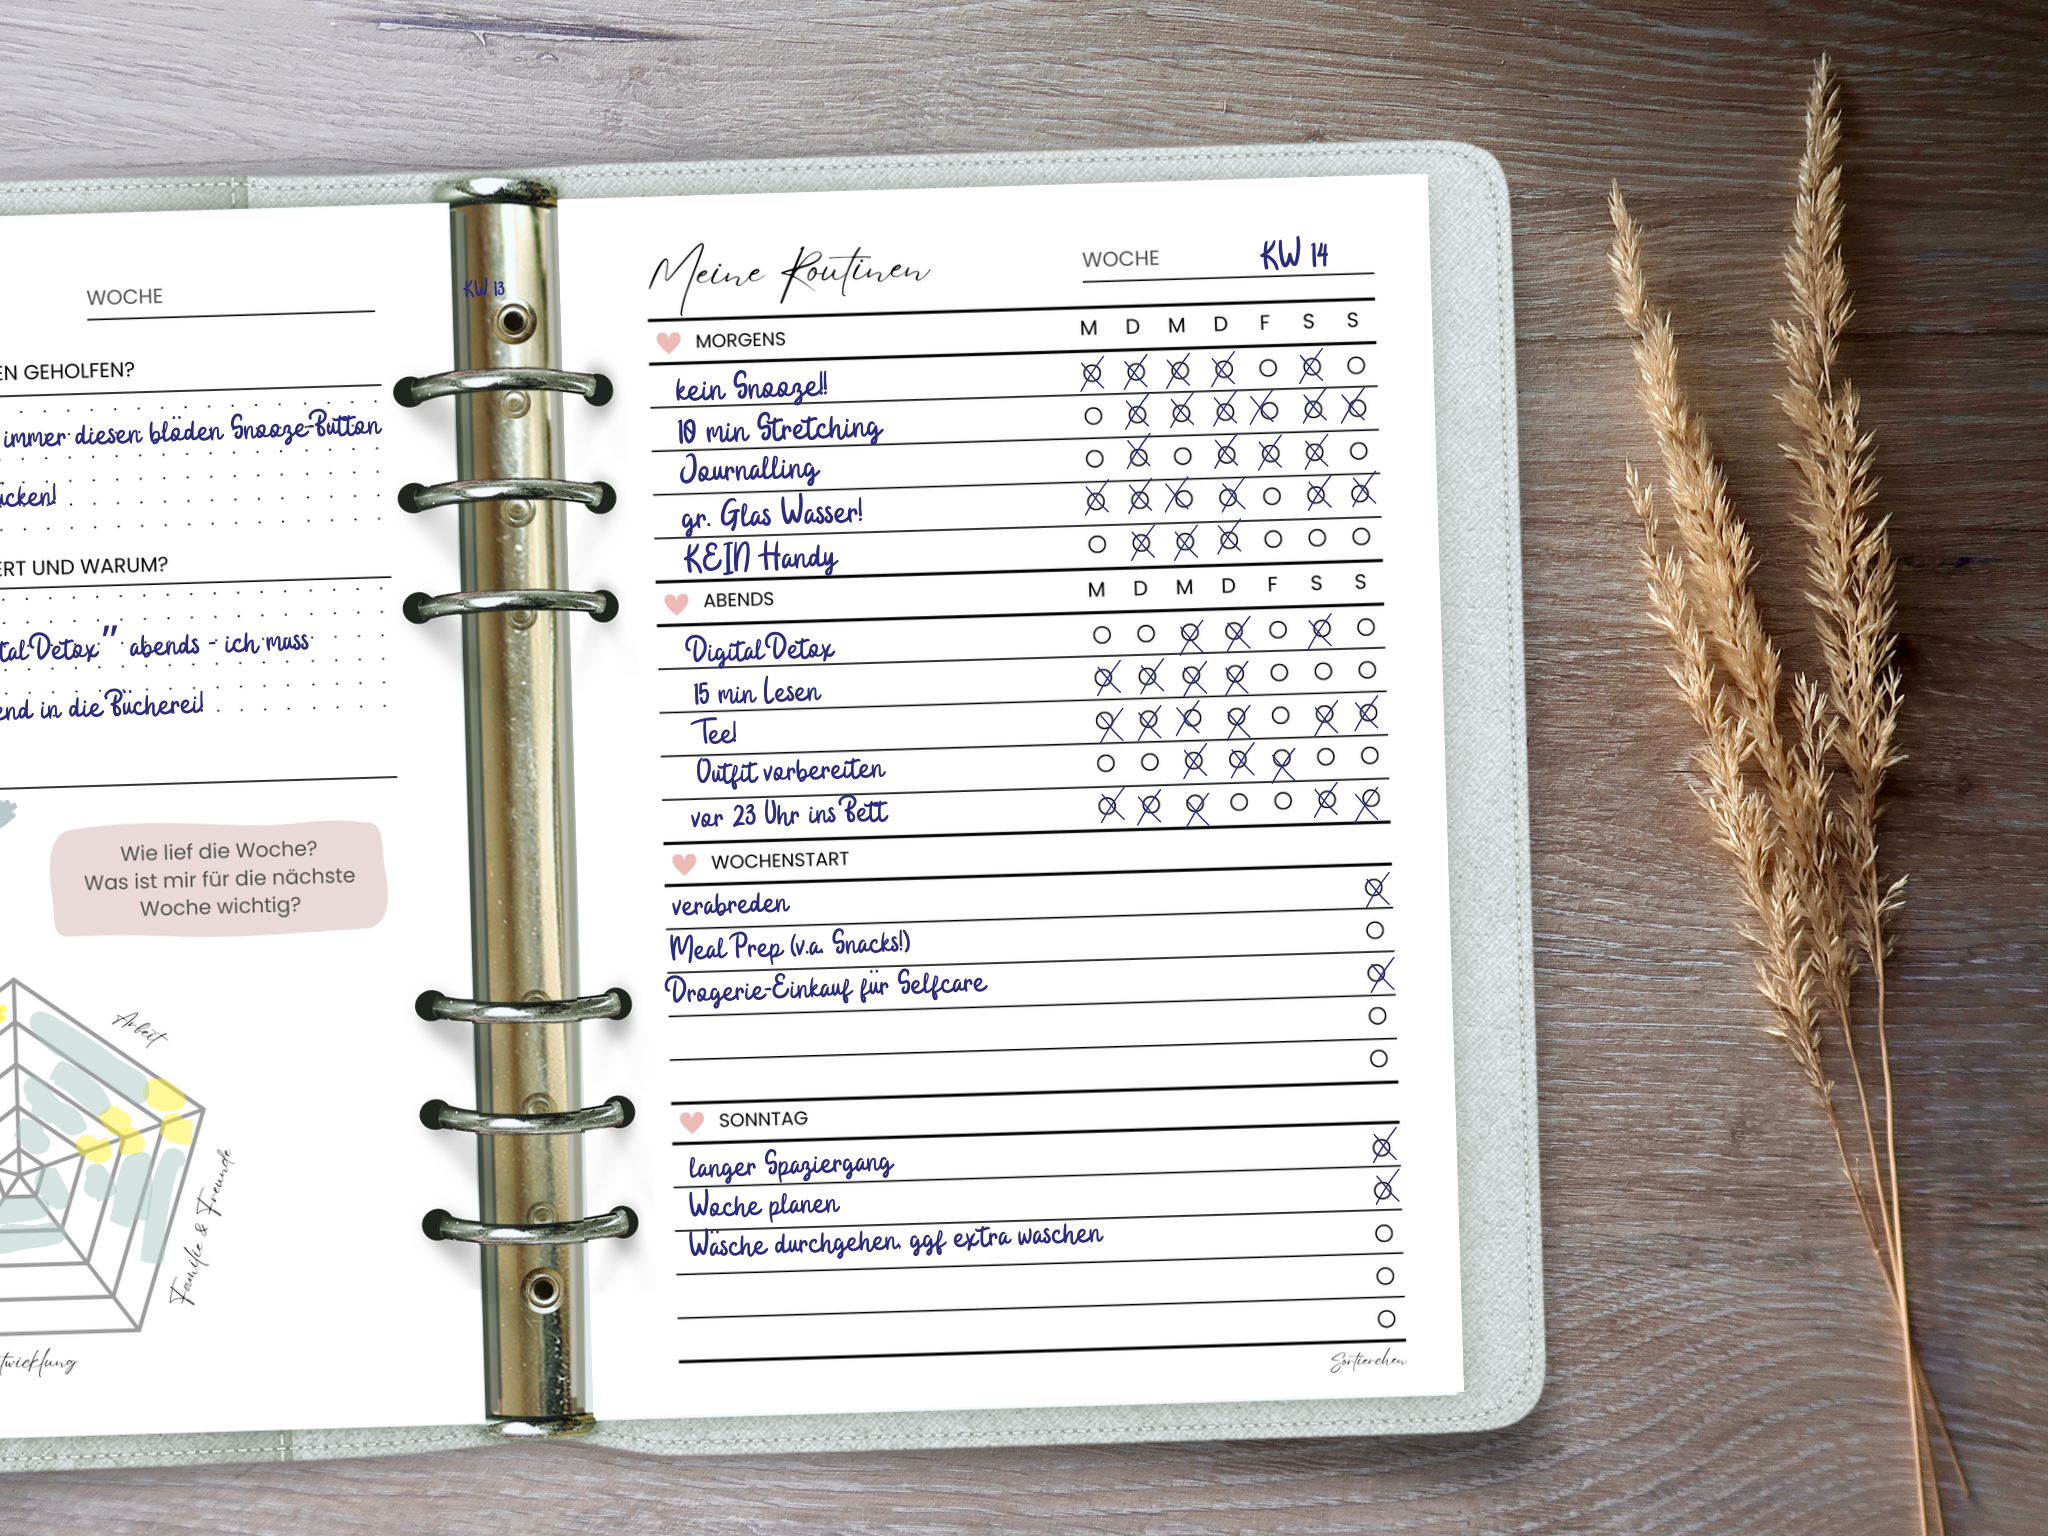 WOCHE
KW 13
EN GEHOLFEN?
immer diesen blöden Snooze-Button
ücken!
ERT UND WARUM?
talDetox" abends - ich muss
end in die Bücherei!
Wie lief die Woche?
Was ist mir für die nächste
Woche wichtig?
Arbeit
Familie & Freunde
twicklung
Meine Routinen
WOCHE KW 14
MORGENS M D M D F S S
kein Snooze!!
10 min Stretching
Journalling
gr. Glas Wasser!
KEIN Handy
ABENDS M D M D F S S
DigitalDetox
15 min Lesen
Tee!
Outfit vorbereiten
vor 23 Uhr ins Bett
WOCHENSTART
verabreden
Meal Prep (v.a. Snacks!)
Drogerie-Einkauf für Selfcare
SONNTAG
langer Spaziergang
Woche planen
Wäsche durchgehen, ggf extra waschen
Sortierchen